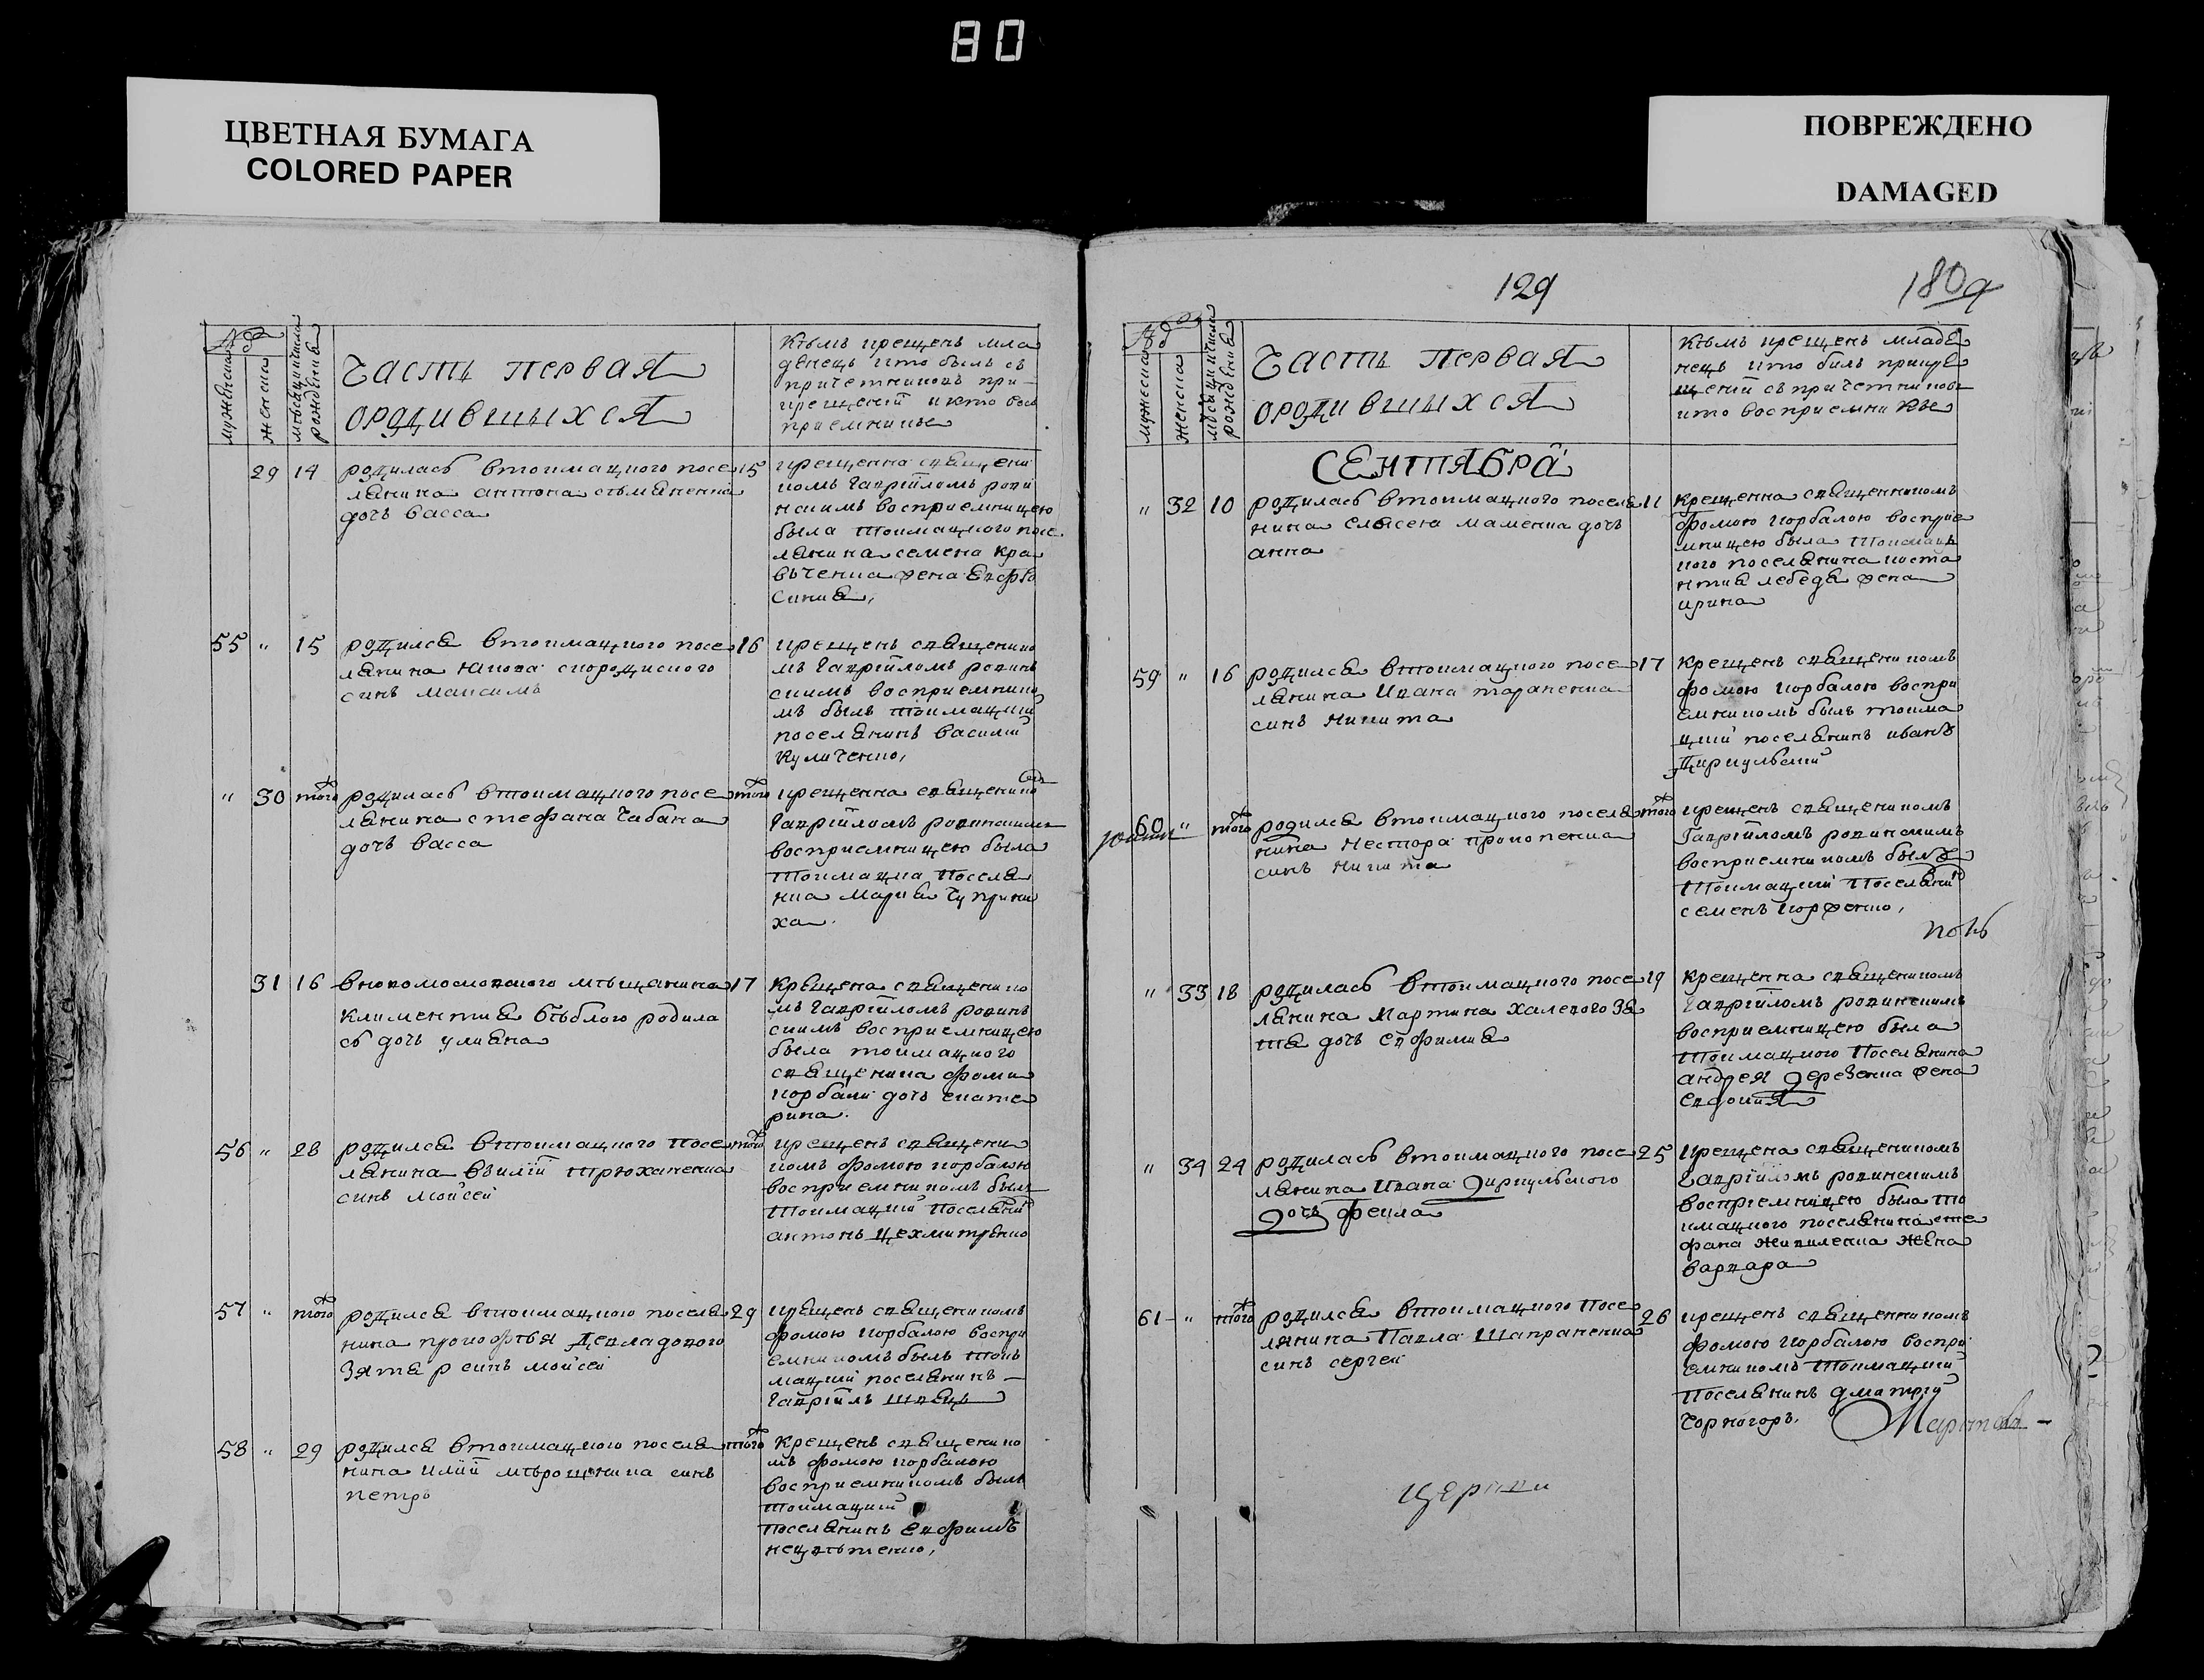 80
ЦВЕТНАЯ БУМАГА
COLORED PAPER
ПОВРЕЖДЕНО
DAMAGED
мужеска
женска
рождения
часть первая
ородившыхся
кѣмъ крещенъ мла
денецъ кто былъ съ
причетниковъ при
крещенїи и кто вос
приемники
29 14 родилась втокмацкого посе 15
лянина антона
дочь васса
крещенна священи
комъ гаврїиломъ ровин
скимъ восприемницею
была токмацкого посе
лянина семена кра
вченка жена евфро
синия,
55 " 15 родился втокмацкого посе 16
лянина якова скородиского
синъ максимъ
крещенъ священико
мъ гаврїиломъ ровинъ
скимъ восприемнико
мъ былъ токмацкий
поселянинъ василий
куличенко,
" 30 того родилась втокмацкого посе того
лянина стефана чабана
дочь васса
крещенна священико
гаврїиломъ ровинским
восприемницею была
токмацка поселя
нка мария чуприни
ха.
31 16 вновомосковского мѣщанина 17
климентия бѣлого родила
сь дочь улияна
крещена священико
мъ гаврїиломъ ровинъ
скимъ восприемницею
была токмацкого
священика фоми
корбали дочь екате
рина.
56 " 28 родился втокмацкого посе того
лянина трюханенка
синъ мойсей
крещенъ священи
комъ фомою корбалою
восприемникомъ былъ
токмацкий поселянин
антонъ цехмитренко
57 " того родился втокмацкого поселя 29
нина прокофъя
зятя синъ мойсей
крещенъ священикомъ
фомою корбалою воспри
емникомъ былъ ток
мацкий поселянинъ
гаврїилъ швецъ
58 " 29 родился втокмацкого поселя того
нина илїи мѣрошника синъ
петръ
крещенъ священико
мъ фомою корбалою
восприемникомъ былъ
токмацкий
поселянинъ евфимъ
129
180
мужеска
женска
рождения
часть первая
ородившыхся
кѣмъ крещенъ младе
нецъ кто билъ прикре
щенїи съпричетников
кто восприемники
сентября
" 32 10 родилась втокмацкого поселя 11
нина елисею маменка дочь
анна
крещенна священникомъ
фомою корбалою восприе
мницею была токмац
кого поселянина коста
нтия лебедя жена
ирина
59 " 16 родился втокмацкого посе 17
лянина ивана тараненка
синъ никита
крещенъ священикомъ
фомою корбалою воспри
емникомъ былъ токма
цкий поселянинъ иванъ
циркульский
60 " того родился втокмацкого поселя того
нина нестора прокопенка
синъ никита
крещенъ священикомъ
гаврїиломъ ровинскимъ
восприемникомъ былъ
токмацкий поселянин
семенъ корженко,
" 33 18 родилась втокмацкого посе 19
лянина мартина халевого зя
тя дочь евфимия
крещенна священикомъ
гаврїиломъ ровинскимъ
восприемницею была
токмацкого поселянина
андрея деревенка жена
евдокия
" 34 24 родилась втокмацкого посе 25
лянина ивана диркульского
дочь фекла
крещена священикомъ
гаврїиломъ ровинскимъ
восприемницею была то
кмацкого поселянина сте
фана живиленка жена
варвара
61 " того родился втокмацкого посе 26
лянина павла шапраненка
синъ сергей
крещенъ священникомъ
фомою корбалою воспри
емникомъ токмацкий
поселянинъ дмитрїй
чорногоръ.
церкви